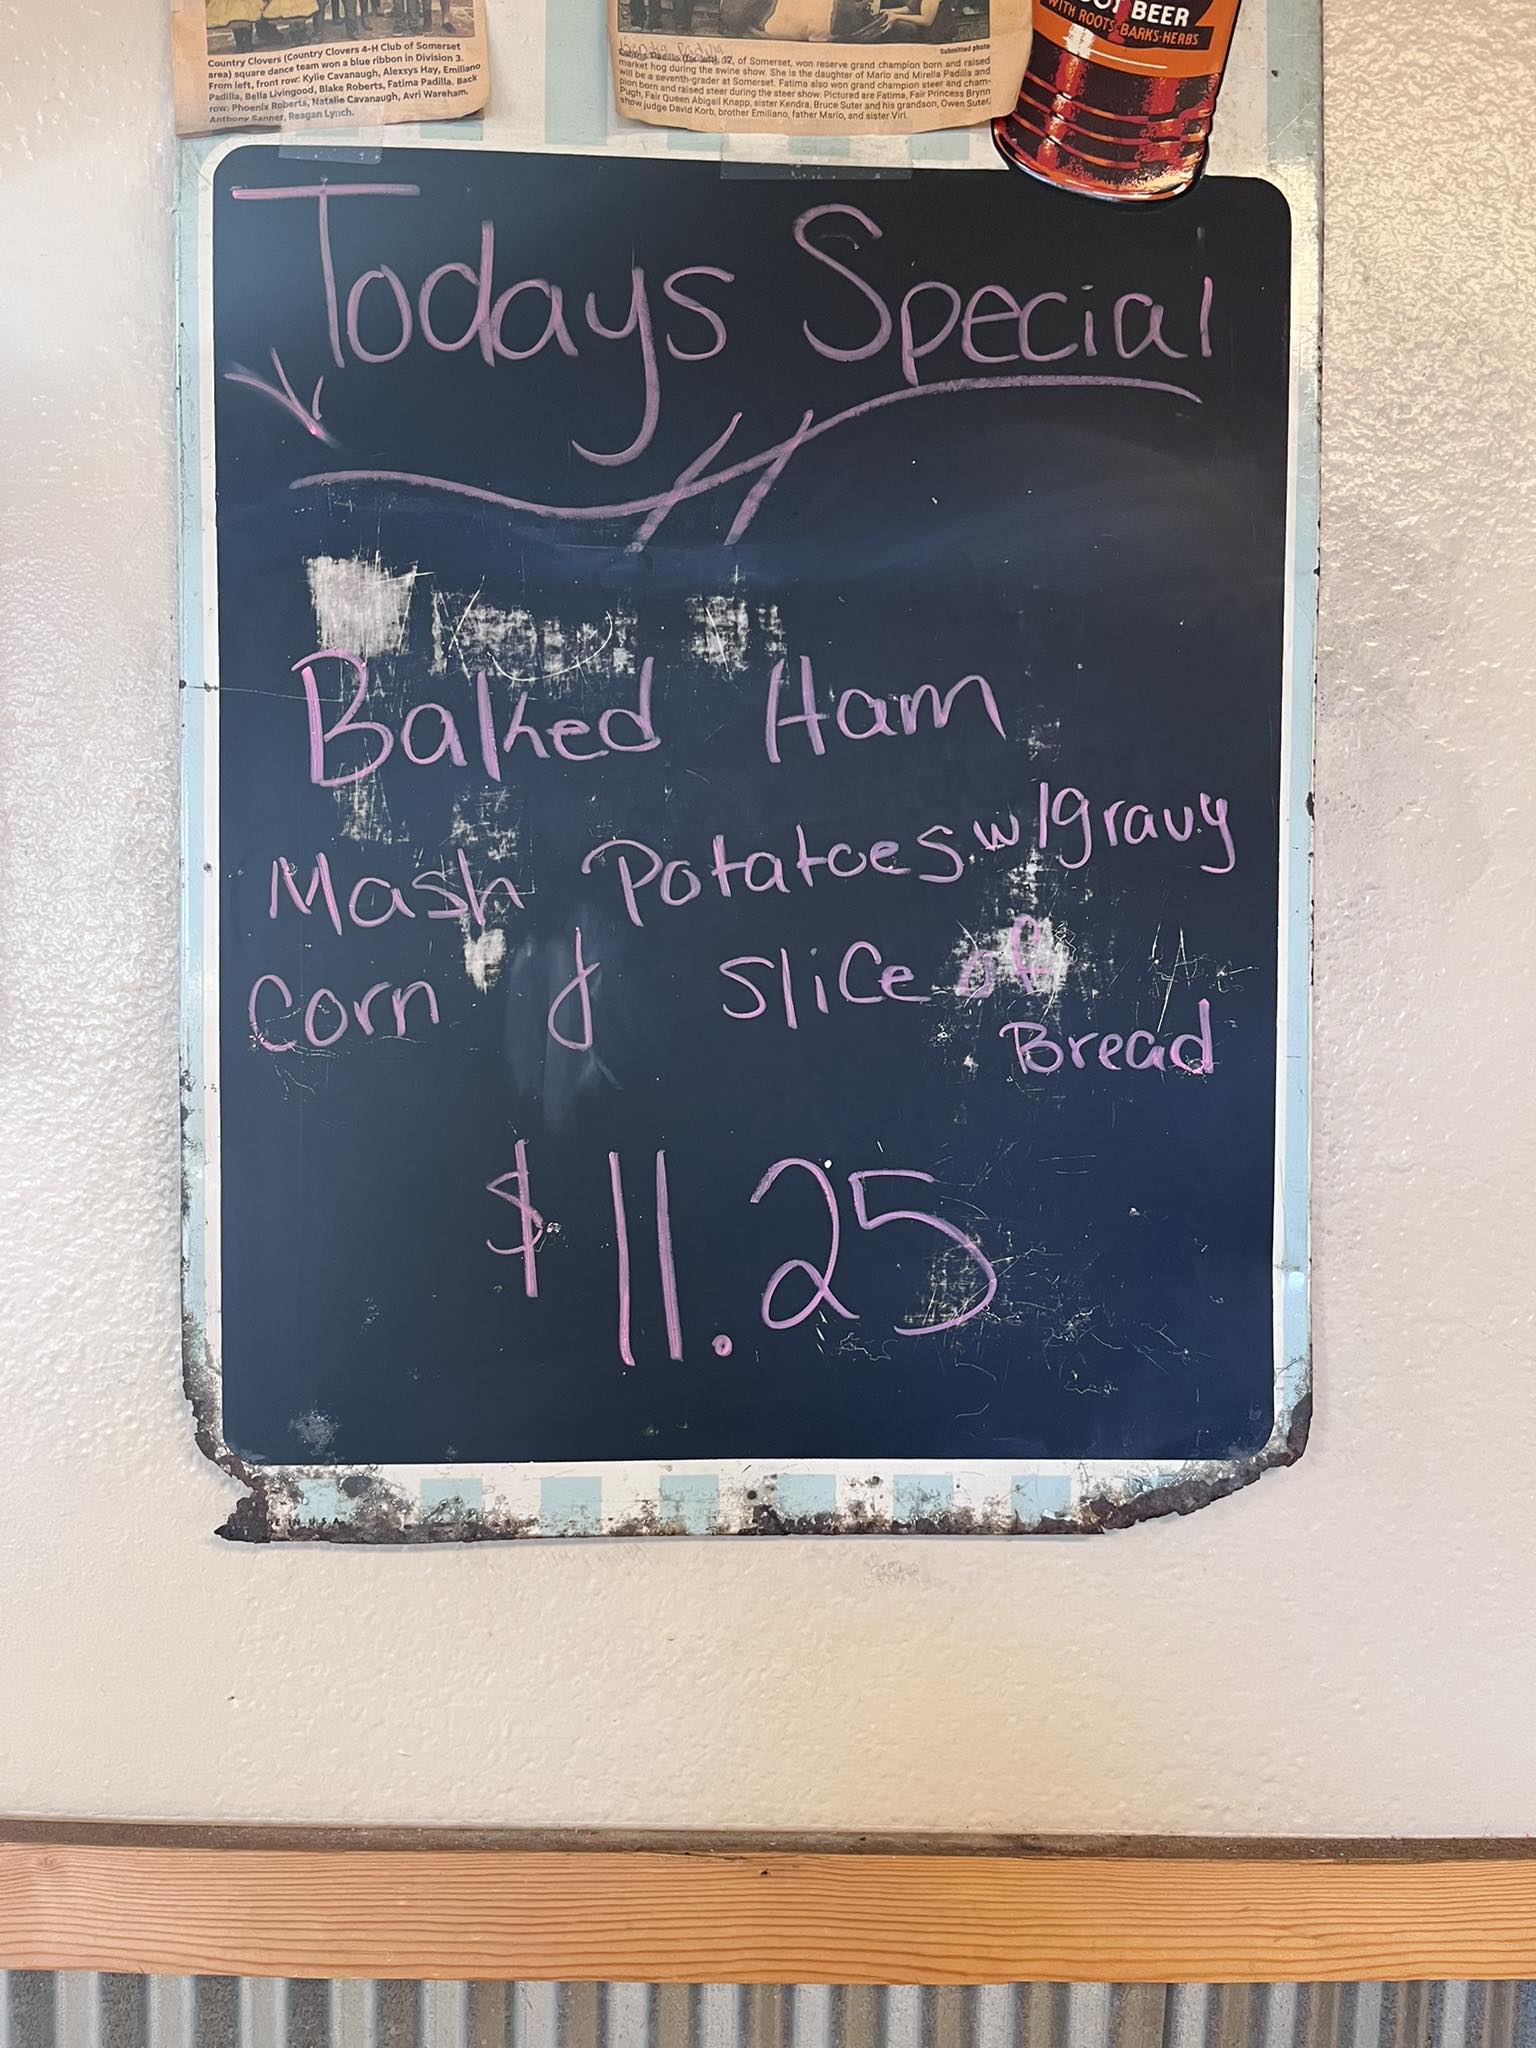 Country Clovers (Country Clovers 4-H Club of Somerset
area) square dance team won a blue ribbon in Division 3.
From left, front row: Kylie Cavanaugh, Alexsys Hay, Emiliano
Padilla, Bella Livingood, Blake Roberts, Fatima Padilla. Back
row: Phoenix Roberts, Natalie Cavanaugh, Avri Wareham,
Anthony Sanner, Reagan Lynch.
Submitted photo
12, of Somerset, won reserve grand champion born and raised
market hog during the swine show. She is the daughter of Mario and Mirella Padilla and
will be a seventh-grader at Somerset. Fatima also won grand champion steer and cham-
pion born and raised steer during the steer show. Pictured are Fatima, Fair Princess Brynn
Pugh, Fair Queen Abigail Knapp, sister Kendra, Bruce Suter and his grandson, Owen Suter,
show judge David Korb, brother Emiliano, father Mario, and sister Virl.
BEER
WITH ROOTS·BARKS·HERBS
Todays Special
Baked Ham
Mash Potatoes w/gravy
Corn & slice of
Bread
$11.25
E IN U.S.A.